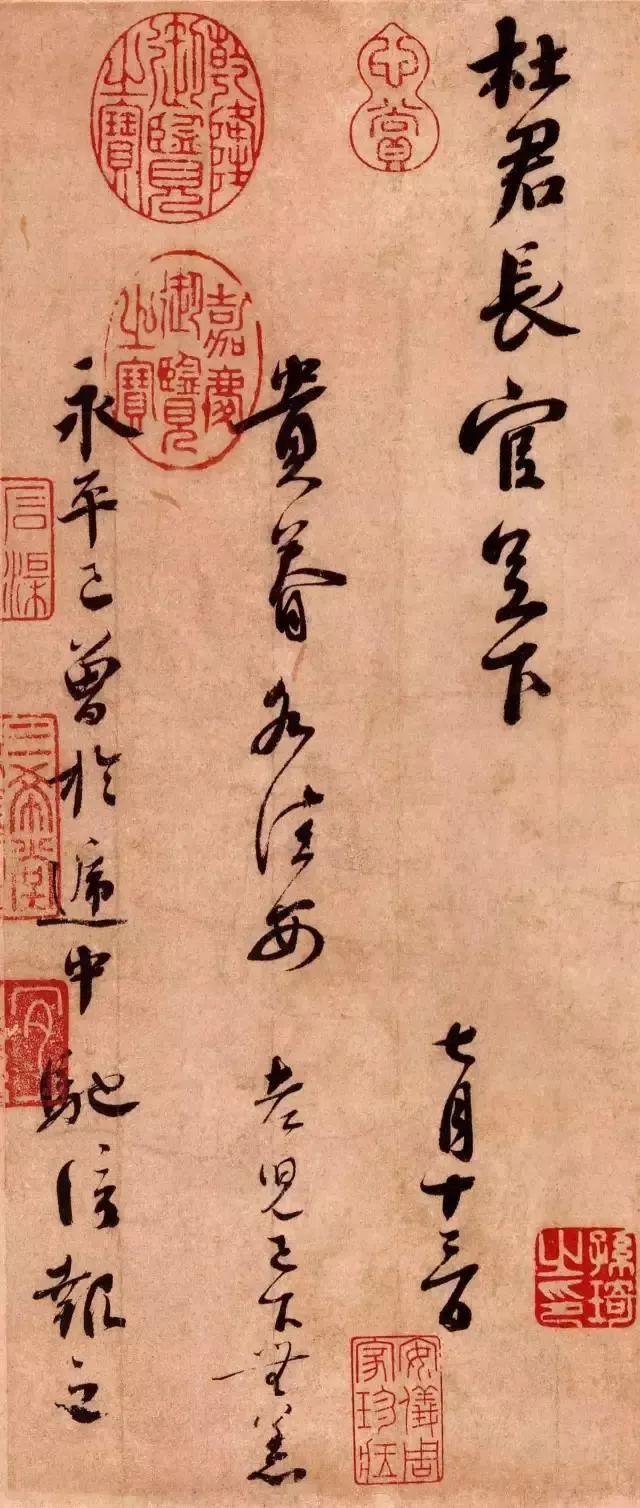 杜君長官足下
七月十三日
貴眷各佳安
老兒已下無恙
永平已曾於遞中
馳信報之
心賞
乾隆御覽之寶
嘉慶御覽之寶
安儀周家珍藏
三希堂